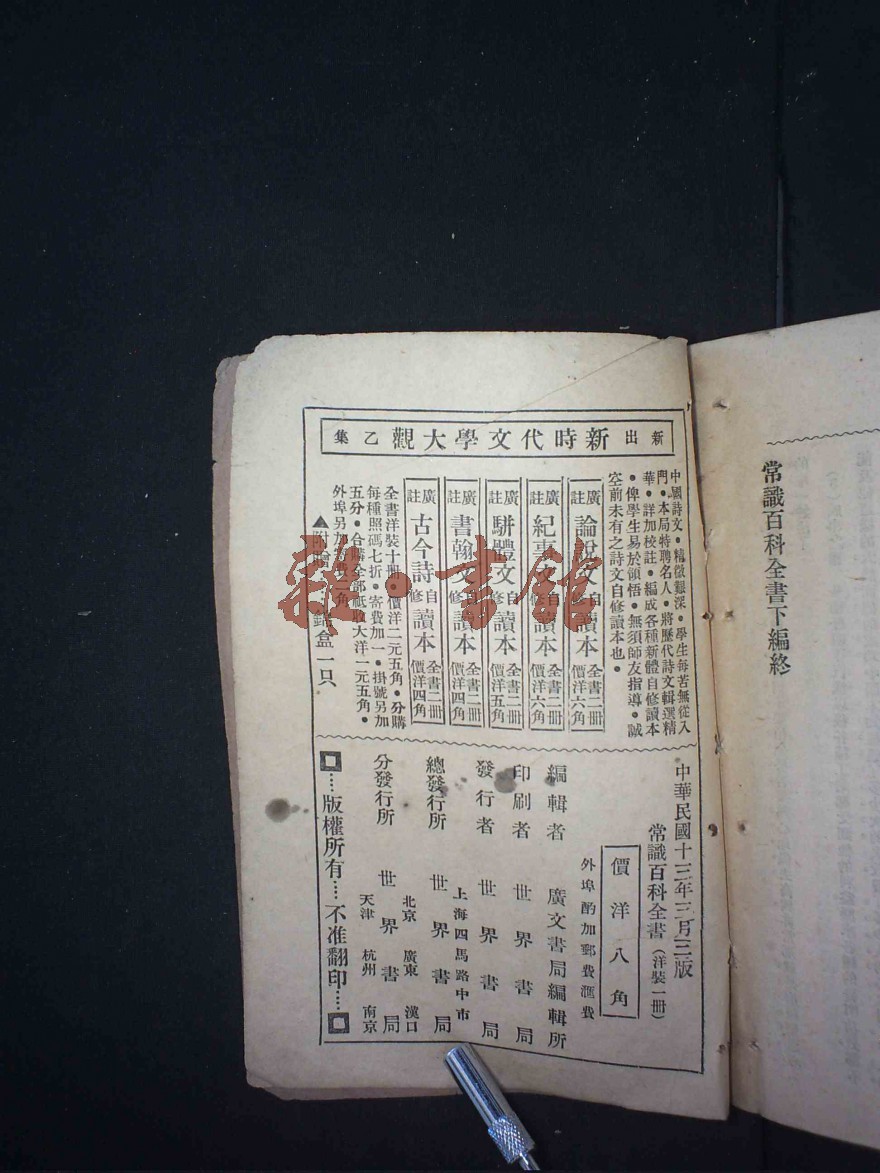 常識百科全書下編終
新出 新時代文學大觀 乙集
中國詩文●精微艱深●學生每苦無從入
門●本局特聘名人●將歷代詩文輯選精
華●詳加校註●編成各種新體自修讀本
●俾學生易於領悟●無須師友指導●誠
空前未有之詩文自修讀本也●
廣註 論說文自修讀本 全書二冊 價洋六角
廣註 紀事文自修讀本 全書二冊 價洋六角
廣註 駢體文自修讀本 全書二冊 價洋五角
廣註 書翰文自修讀本 全書二冊 價洋四角
廣註 古今詩自修讀本 全書二冊 價洋四角
全書洋裝十冊●價洋二元五角●分購
每種照碼七折●寄費加一●掛號另加
五分●合購全部祇收大洋一元五角●
外埠另加寄費二角
▲附贈 錦盒一只
中華民國十三年三月三版
常識百科全書(洋裝一冊)
價洋八角
外埠酌加郵費滙費
編輯者 廣文書局編輯所
印刷者 世界書局
發行者 世界書局
上海四馬路中市
總發行所 世界書局
北京 廣東 漢口
分發行所 世界書局
天津 杭州 南京
版權所有……不准翻印……
書館